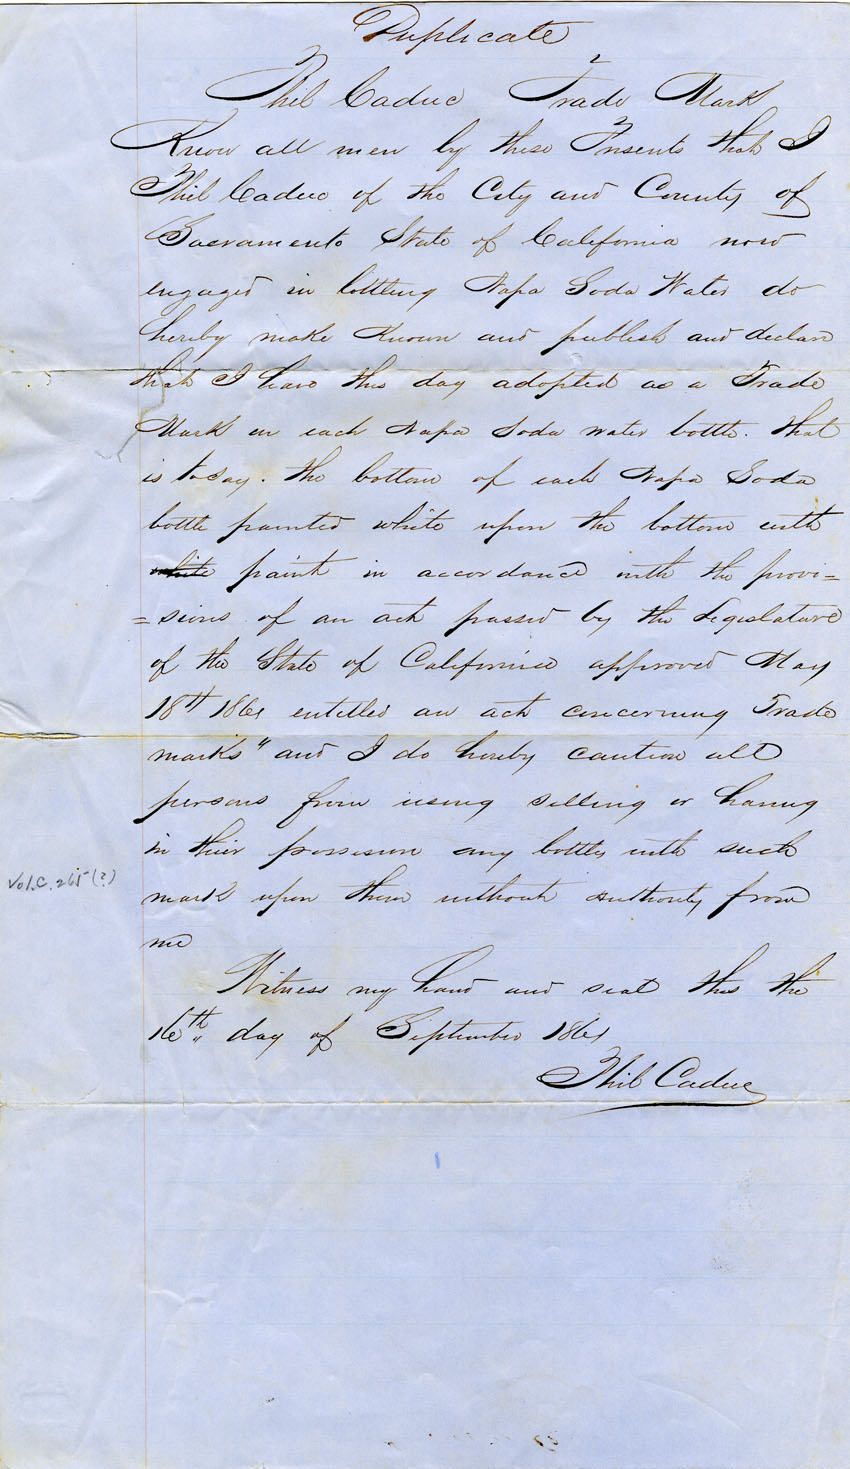 Duplicate
Phil Caduc Trade Mark
Know all men by these Presents that I
Phil Caduc of the City and County of
Sacramento State of California now
engaged in bottling Napa Soda Water do
hereby make Known and publish and declare
that I have this day adopted as a Trade
Mark on each Napa Soda water bottle. that
is to say. the bottom of each Napa Soda
bottle painted white upon the bottom with
white paint in accordance with the provi=
=sions of an act passed by the Legislature
of the State of California approved May
18th 1861 entitled an act concerning Trade
marks" and I do hereby caution all
persons from using selling or having
in their possession any bottles with such
mark upon them without authority from
me
Vol.C.265(?)
Witness my hand and seal this the
16th day of September 1861
Phil Caduc